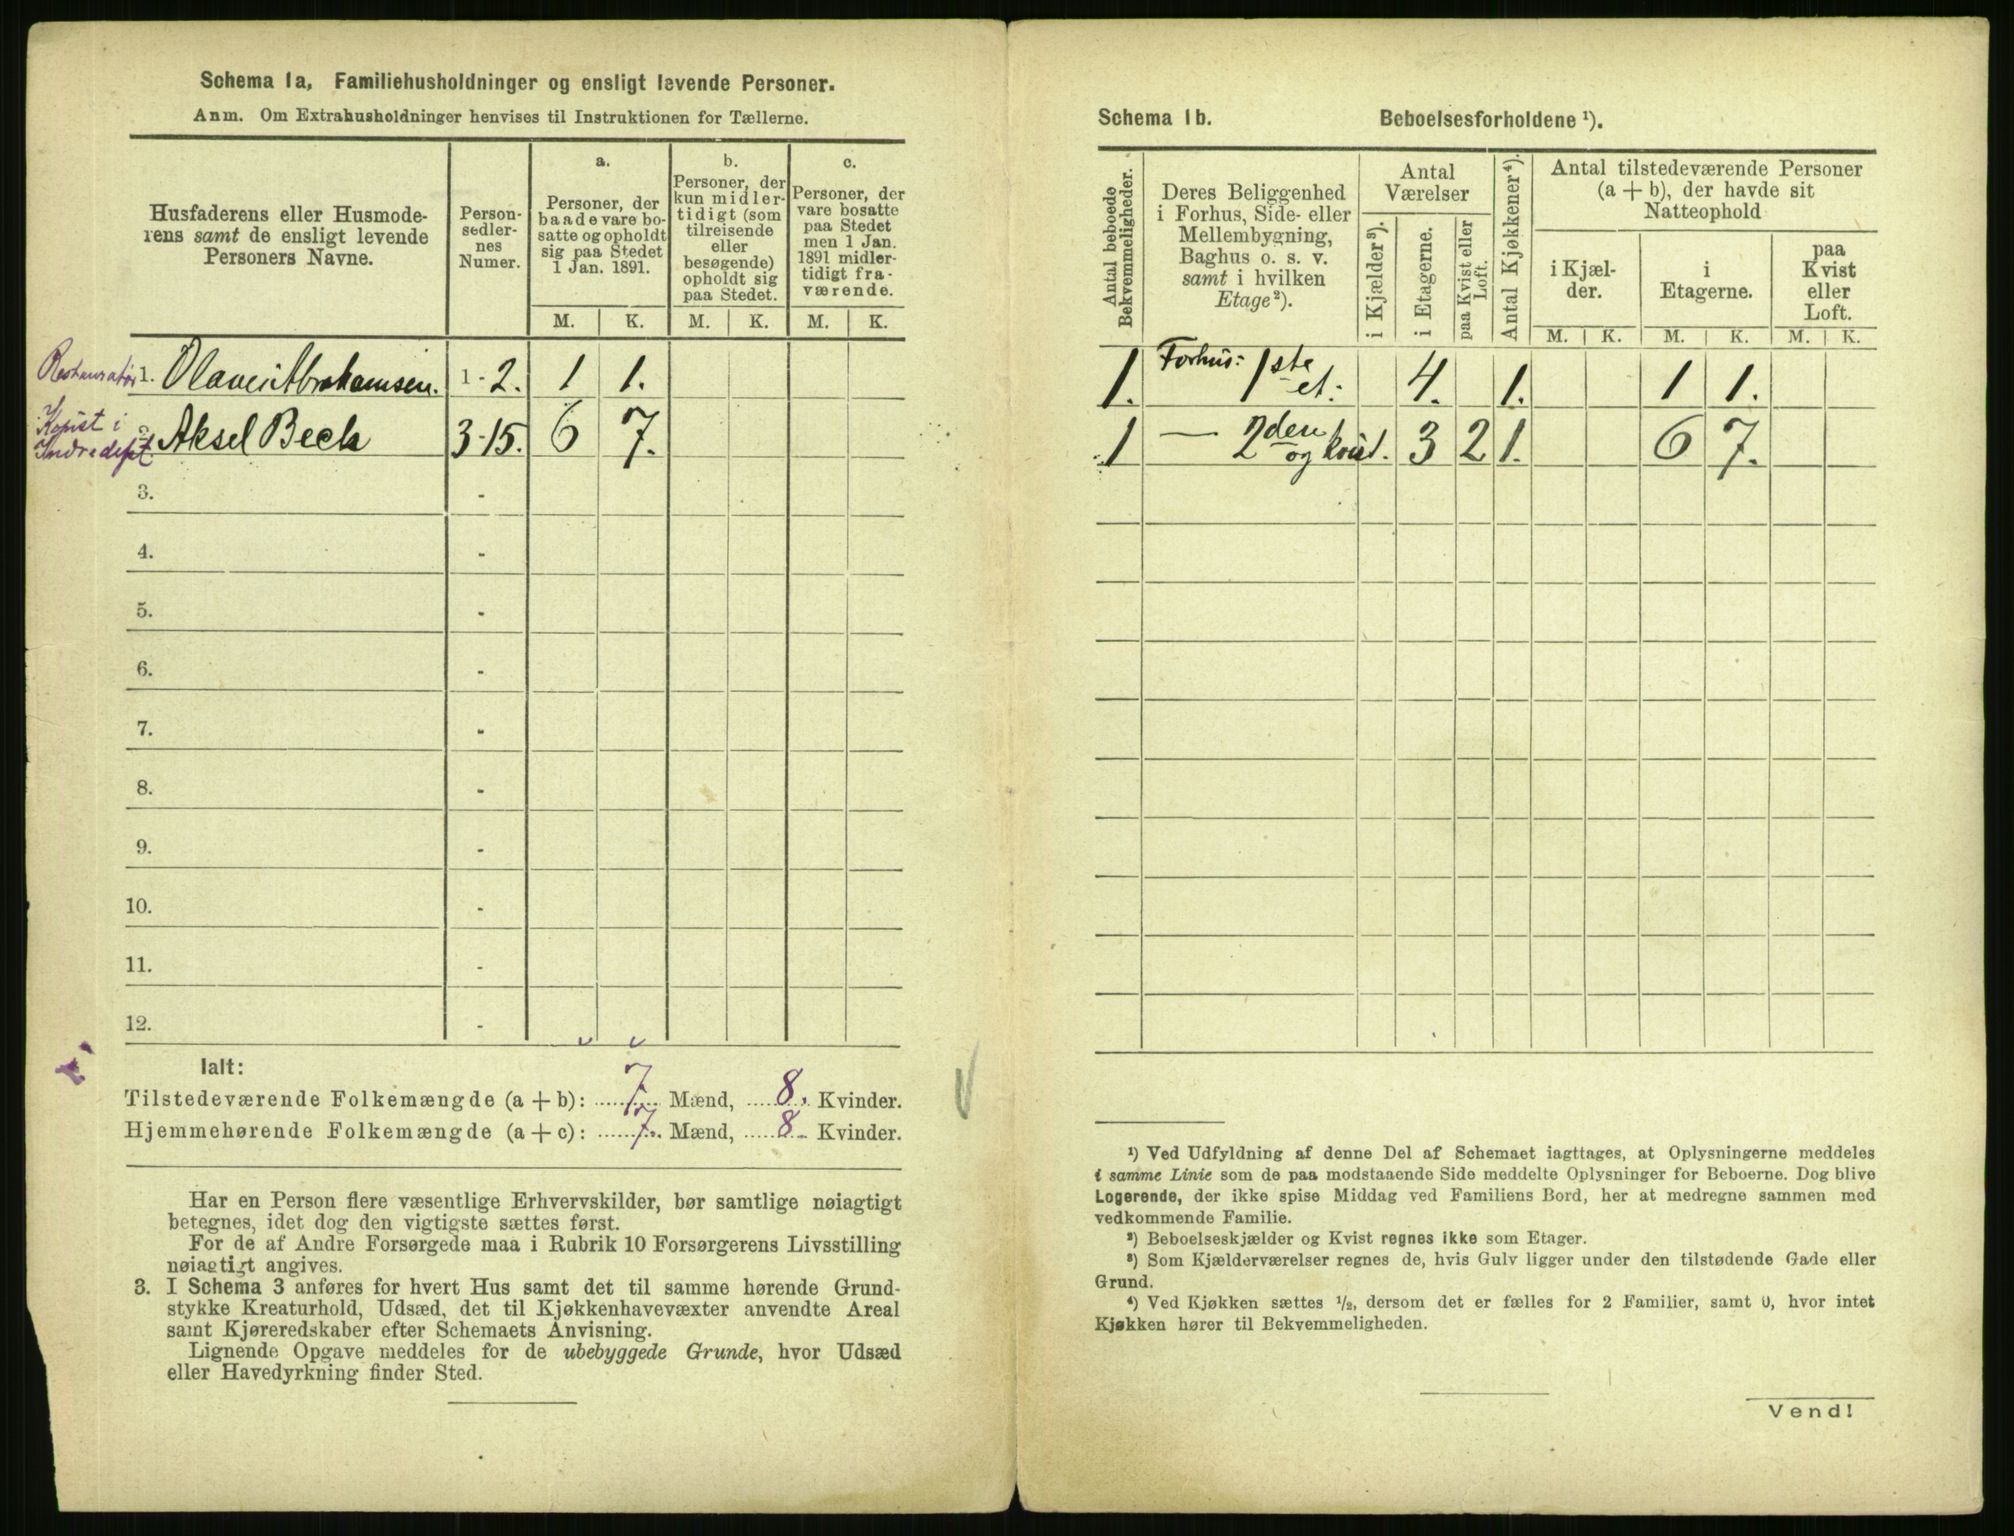 Schema 1a, Familiehusholdninger og ensligt levende Personer.
Anm. Om Extrahusholdninger henvises til Instruktionen for Tællerne.
Husfaderens eller Husmode-
rens samt de ensligt levende
Personers Navne.
Person-
sedler-
nes
Numer.
a.
Personer, der
baade vare bo-
satte og opholdt
sig paa Stedet
1 Jan. 1891.
b.
Personer, der
kun midler-
tidigt (som
tilreisende
eller
besøgende)
opholdt sig
paa Stedet.
c.
Personer, der
vare bosatte
paa Stedet
men 1 Jan.
1891 midler-
tidigt fra-
værende.
M. K. M. K. M. K.
Restauratør 1. Olaves Abrahamsen. 1-2. 1 1.
Kopist i
Indredept. 2. Aksel Beck 3-15. 6 7.
3. -
4. -
5. -
6. -
7. -
8. -
9. -
10. -
11. -
12. -
Ialt:
Tilstedeværende Folkemængde (a + b): 7. Mænd, 8. Kvinder.
Hjemmehørende Folkemængde (a + c): 7. Mænd, 8- Kvinder.
Har en Person flere væsentlige Erhvervskilder, bør samtlige nøiagtigt
betegnes, idet dog den vigtigste sættes først.
For de af Andre Forsørgede maa i Rubrik 10 Forsørgerens Livsstilling
nøiagtigt angives.
3. I Schema 3 anføres for hvert Hus samt det til samme hørende Grund-
stykke Kreaturhold, Udsæd, det til Kjøkkenhavevæxter anvendte Areal
samt Kjøreredskaber efter Schemaets Anvisning.
Lignende Opgave meddeles for de ubebyggede Grunde, hvor Udsæd
eller Havedyrkning finder Sted.
Schema 1b. Beboelsesforholdene ¹).
Antal beboede
Bekvemmeligheder.
Deres Beliggenhed
i Forhus, Side- eller
Mellembygning,
Baghus o. s. v.
samt i hvilken
Etage²).
Antal
Værelser
i Kjælder³).
i Etagerne.
paa Kvist eller
Loft.
Antal Kjøkkener⁴).
Antal tilstedeværende Personer
(a + b), der havde sit
Natteophold
i Kjæl-
der.
i
Etagerne.
paa
Kvist
eller
Loft.
M. K. M. K. M. K.
1. Forhus: 1ste et: 4. 1. 1 1.
1 — 2den og kvist. 3 2 1. 6 7.
¹) Ved Udfyldning af denne Del af Schemaet iagttages, at Oplysningerne meddeles
i samme Linie som de paa modstaaende Side meddelte Oplysninger for Beboerne. Dog blive
Logerende, der ikke spise Middag ved Familiens Bord, her at medregne sammen med
vedkommende Familie.
²) Beboelseskjælder og Kvist regnes ikke som Etager.
³) Som Kjælderværelser regnes de, hvis Gulv ligger under den tilstødende Gade eller
Grund.
⁴) Ved Kjøkken sættes ½, dersom det er fælles for 2 Familier, samt 0, hvor intet
Kjøkken hører til Bekvemmeligheden.
Vend!